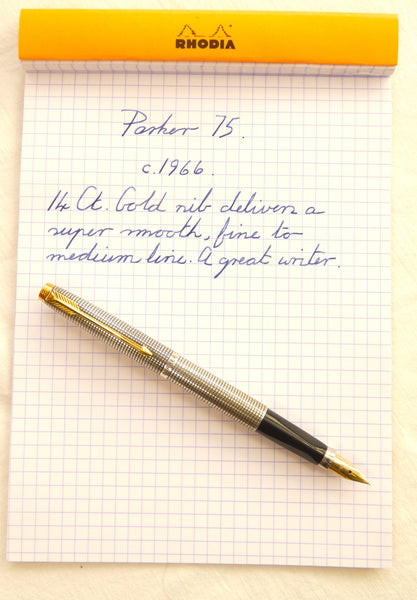 RHODIA
Parker 75.
c.1966.
14 Ct. Gold nib delivers a
super smooth, fine to
medium line. A great writer.